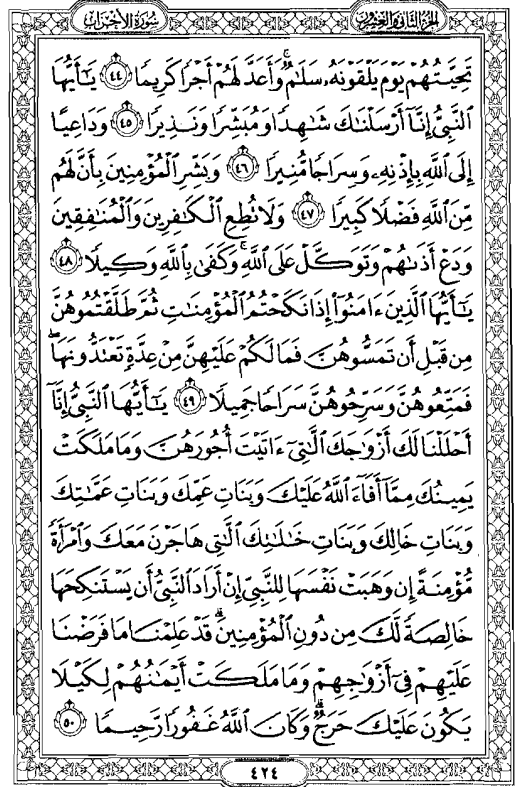 الجزء الثاني والعشرون
سورة الأحزاب
تَحِيَّتُهُمْ يَوْمَ يَلْقَوْنَهُۥ سَلَـٰمٌ ۚ وَأَعَدَّ لَهُمْ أَجْرًا كَرِيمًا ٤٤ يَـٰٓأَيُّهَا
ٱلنَّبِىُّ إِنَّآ أَرْسَلْنَـٰكَ شَـٰهِدًا وَمُبَشِّرًا وَنَذِيرًا ٤٥ وَدَاعِيًا
إِلَى ٱللَّهِ بِإِذْنِهِۦ وَسِرَاجًا مُّنِيرًا ٤٦ وَبَشِّرِ ٱلْمُؤْمِنِينَ بِأَنَّ لَهُم
مِّنَ ٱللَّهِ فَضْلًا كَبِيرًا ٤٧ وَلَا تُطِعِ ٱلْكَـٰفِرِينَ وَٱلْمُنَـٰفِقِينَ
وَدَعْ أَذَىٰهُمْ وَتَوَكَّلْ عَلَى ٱللَّهِ ۚ وَكَفَىٰ بِٱللَّهِ وَكِيلًا ٤٨
يَـٰٓأَيُّهَا ٱلَّذِينَ ءَامَنُوٓا۟ إِذَا نَكَحْتُمُ ٱلْمُؤْمِنَـٰتِ ثُمَّ طَلَّقْتُمُوهُنَّ
مِن قَبْلِ أَن تَمَسُّوهُنَّ فَمَا لَكُمْ عَلَيْهِنَّ مِنْ عِدَّةٍ تَعْتَدُّونَهَا ۖ
فَمَتِّعُوهُنَّ وَسَرِّحُوهُنَّ سَرَاحًا جَمِيلًا ٤٩ يَـٰٓأَيُّهَا ٱلنَّبِىُّ إِنَّآ
أَحْلَلْنَا لَكَ أَزْوَٰجَكَ ٱلَّـٰتِىٓ ءَاتَيْتَ أُجُورَهُنَّ وَمَا مَلَكَتْ
يَمِينُكَ مِمَّآ أَفَآءَ ٱللَّهُ عَلَيْكَ وَبَنَاتِ عَمِّكَ وَبَنَاتِ عَمَّـٰتِكَ
وَبَنَاتِ خَالِكَ وَبَنَاتِ خَـٰلَـٰتِكَ ٱلَّـٰتِى هَاجَرْنَ مَعَكَ وَٱمْرَأَةً
مُّؤْمِنَةً إِن وَهَبَتْ نَفْسَهَا لِلنَّبِىِّ إِنْ أَرَادَ ٱلنَّبِىُّ أَن يَسْتَنكِحَهَا
خَالِصَةً لَّكَ مِن دُونِ ٱلْمُؤْمِنِينَ ۗ قَدْ عَلِمْنَا مَا فَرَضْنَا
عَلَيْهِمْ فِىٓ أَزْوَٰجِهِمْ وَمَا مَلَكَتْ أَيْمَـٰنُهُمْ لِكَيْلَا
يَكُونَ عَلَيْكَ حَرَجٌ ۗ وَكَانَ ٱللَّهُ غَفُورًا رَّحِيمًا ٥٠
٤٢٤